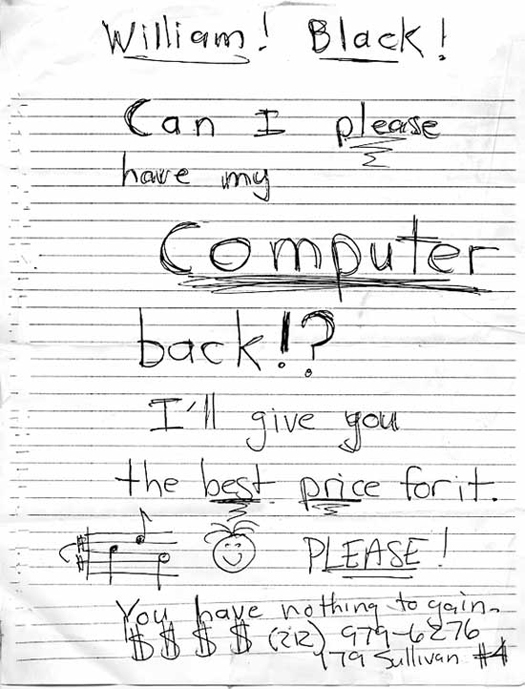 William! Black!
Can I please
have my
Computer
back!?
I'll give you
the best price for it.
PLEASE!
You have nothing to gain.
$ $ $ $ (212) 979-6276
179 Sullivan #4